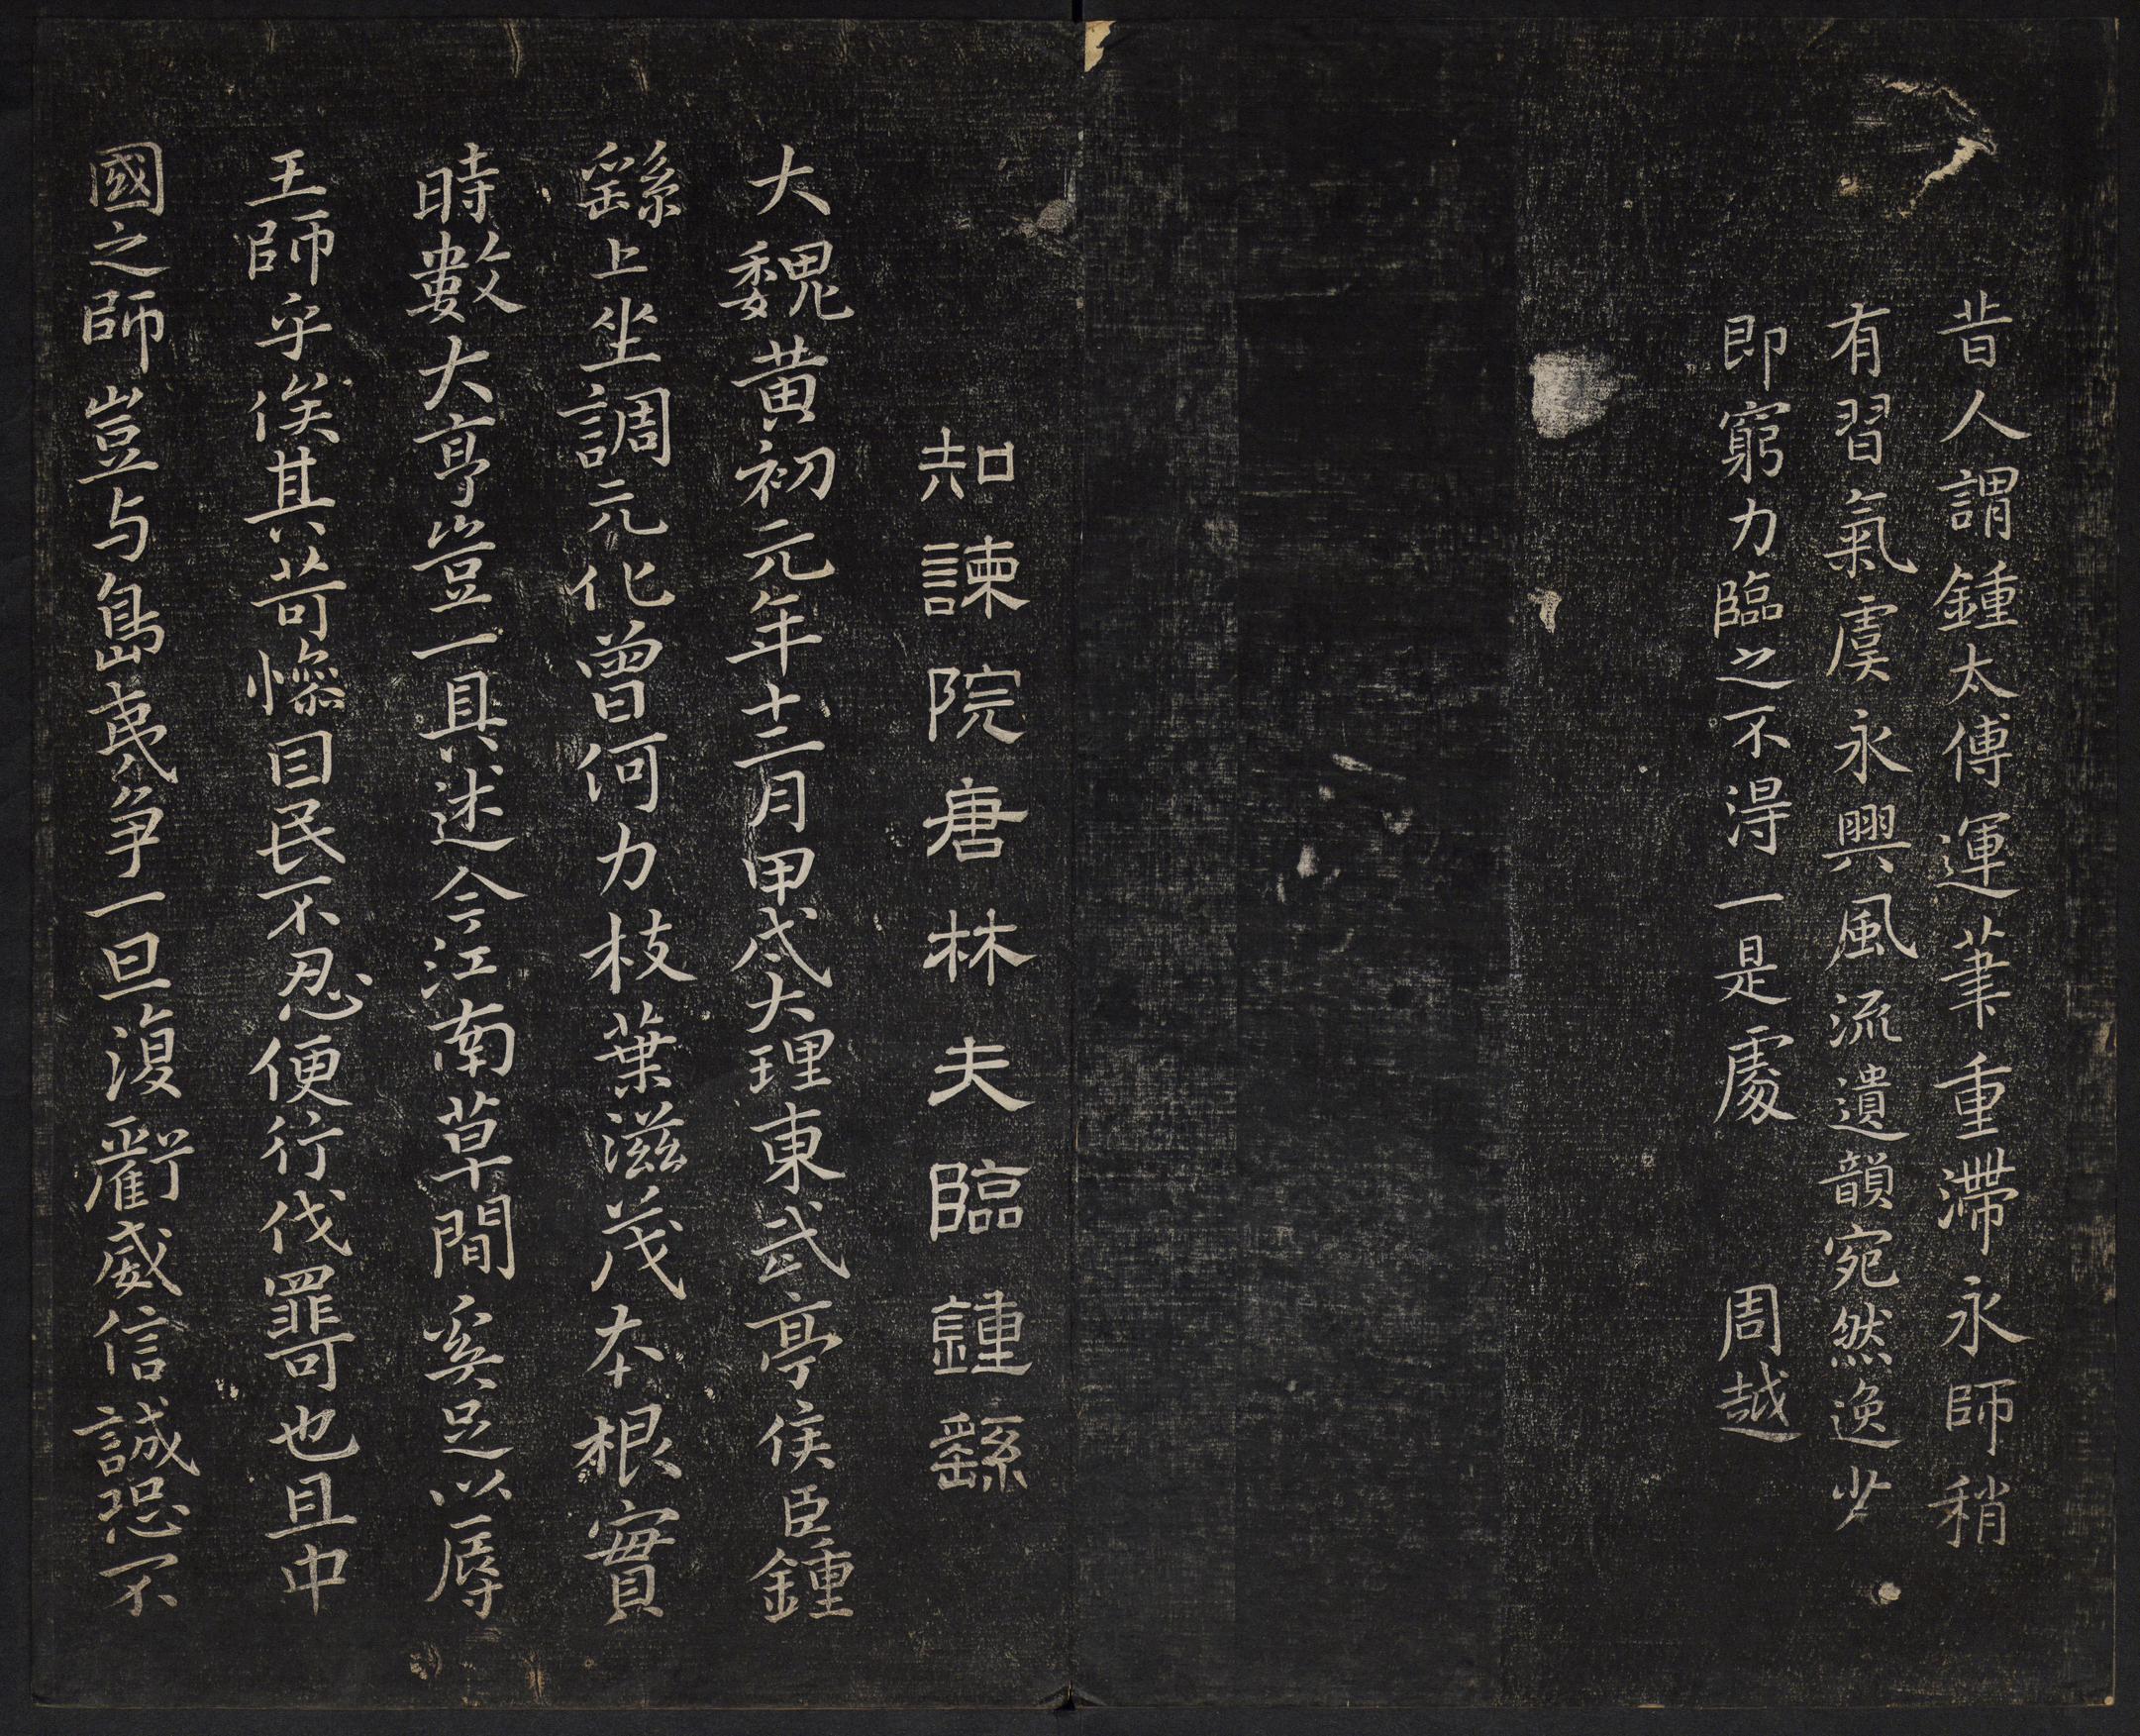 昔人謂鍾太傅運筆重滯永師稍
有習氣虞永興風流遺韻宛然逸少
即窮力臨之不得一是處 周越
知諫院唐林夫臨鍾繇
大魏黃初元年十二月甲戌大理東武亭侯臣鍾
繇上坐調元化曾何力枝葉滋茂本根實
時數大亨豈一具述今江南草間奚足以辱
王師乎俟其苛慘困民不忍便行伐罪可也且中
國之師豈与島夷争一旦復虧威信誠恐不